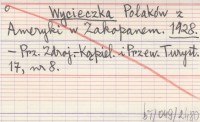 Wycieczka Polaków z
Ameryki w Zakopanem. 1928.
– Prz. Zdroj.-Kąpiel. i Przew. Turyst.
17, nr 8.